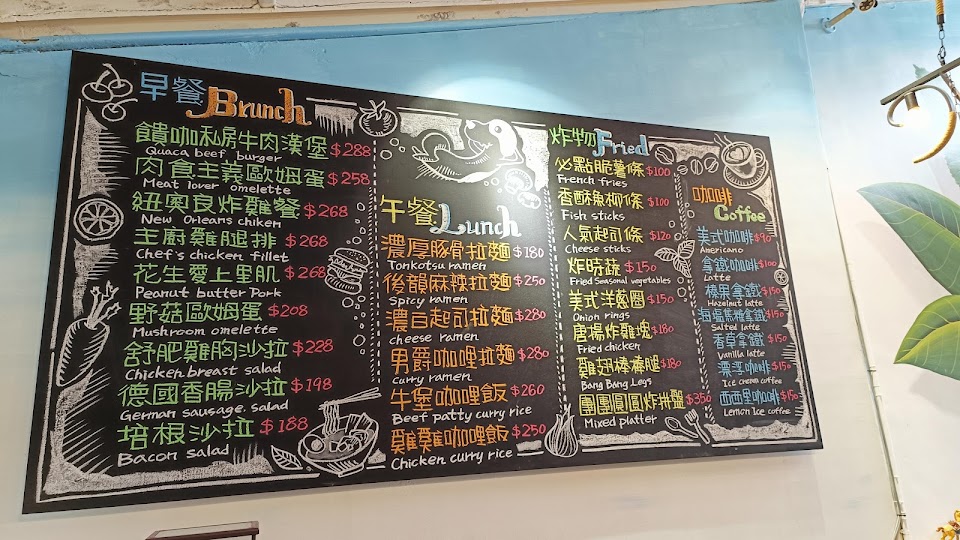 早餐 Brunch
饋咖私房牛肉漢堡 $288
Quaca beef burger
肉食主義歐姆蛋 $258
Meat lover omelette
紐奧良炸雞餐 $268
New Orleans chiken
主廚雞腿排 $268
Chef's chicken fillet
花生愛上里肌 $268
Peanut butter Pork
野菇歐姆蛋 $208
Mushroom omelette
舒肥雞胸沙拉 $228
Chicken breast salad
德國香腸沙拉 $198
German sausage salad
培根沙拉 $188
Bacon salad
午餐 Lunch
濃厚豚骨拉麵 $180
Tonkotsu ramen
後韻麻辣拉麵 $250
Spicy ramen
濃白起司拉麵 $280
cheese ramen
男爵咖哩拉麵 $280
Curry ramen
牛堡咖哩飯 $260
Beef patty curry rice
雞雞咖哩飯 $250
Chicken curry rice
炸物 Fried
必點脆薯條 $100
French fries
香酥魚柳條 $100
Fish sticks
人氣起司條 $120
Cheese sticks
炸時蔬 $150
Fried Seasonal vegetables
美式洋蔥圈 $150
Onion rings
唐揚炸雞塊 $180
Fried chicken
雞翅棒棒腿 $180
Bang Bang Legs
團團圓圓炸拼盤 $350
Mixed platter
咖啡 Coffee
美式咖啡 $90
Americano
拿鐵咖啡 $100
Latte
榛果拿鐵 $150
Hazelnut latte
海鹽焦糖拿鐵 $150
Salted latte
香草拿鐵 $150
Vanilla latte
漂浮咖啡 $150
Ice cream coffee
西西里咖啡 $150
Lemon Ice coffee